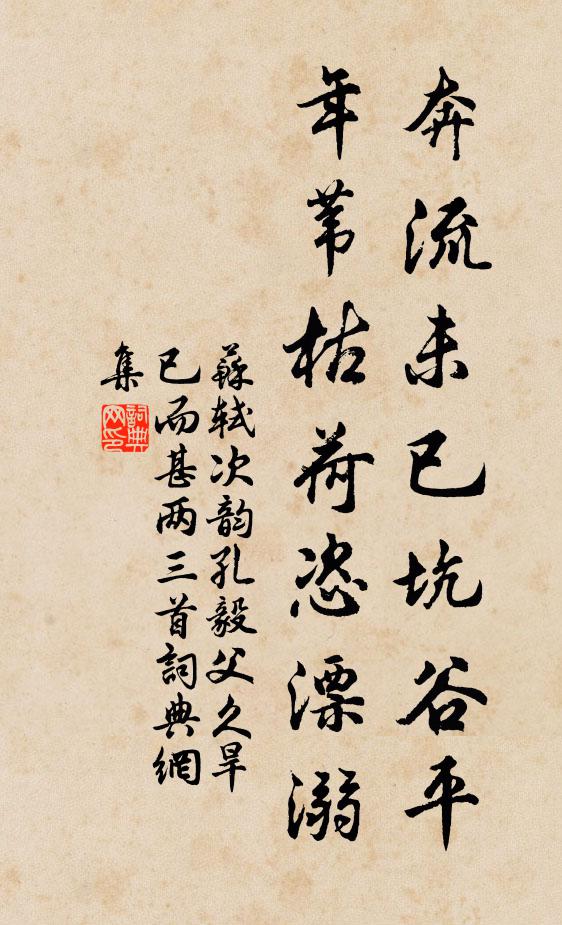 奔流未已坑谷平
年苇枯荷恣漂溺
蘇軾次韵孔毅父久旱
已而甚两三首詞典網
集
詞典网印